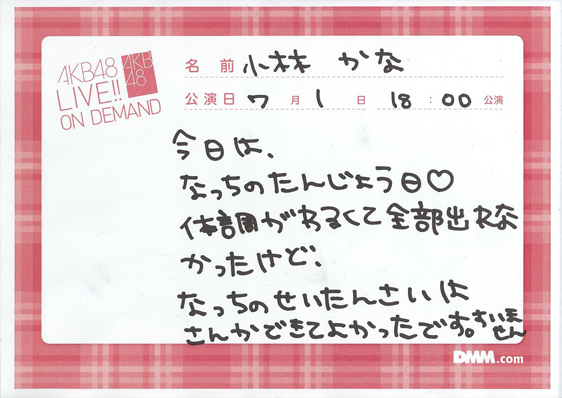 AKB48
LIVE!!
ON DEMAND
AKB
48
名前 小林 かな
公演日 7月1日 18:00公演
今日は、
なっちのたんじょう日♡
体調がわるくて全部出れな
かったけど、
なっちのせいたんさいは
さんかできてよかったです。すいま
せん
DMM.com